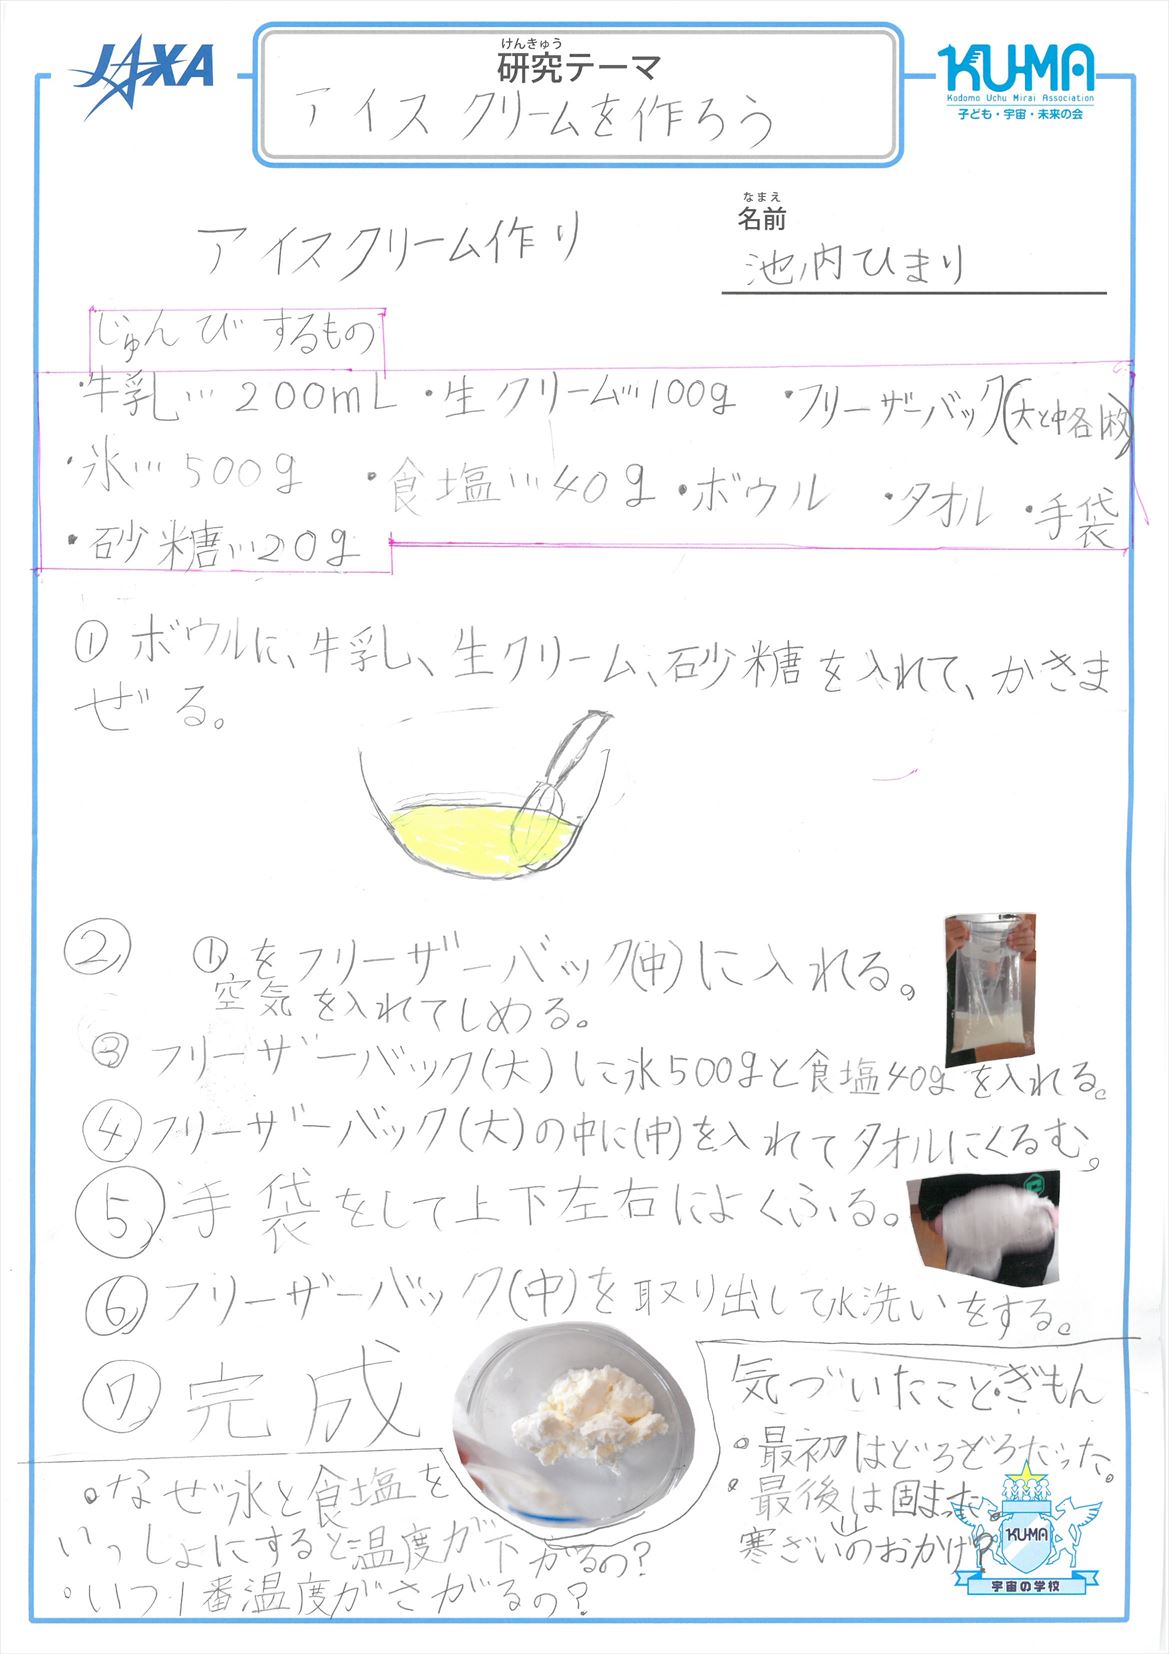 JAXA
けんきゅう
研究テーマ
アイスクリームを作ろう
KU-MA
Kodomo Uchu Mirai Association
子ども・宇宙・未来の会
なまえ
名前
アイスクリーム作り
池内ひまり
じゅんびするもの
・牛乳…200mL ・生クリーム…100g ・フリーザーバック(大と中各1枚)
・氷…500g ・食塩…40g ・ボウル ・タオル ・手袋
・砂糖…20g
① ボウルに、牛乳、生クリーム、砂糖を入れて、かきま
ぜる。
② ①をフリーザーバック(中)に入れる。
空気を入れてしめる。
③ フリーザーバック(大)に氷500gと食塩40gを入れる。
④ フリーザーバック(大)の中に(中)を入れてタオルにくるむ。
⑤ 手袋をして上下左右によくふる。
⑥ フリーザーバック(中)を取り出して水洗いをする。
⑦ 完成
気づいたこと・ぎもん
・最初はどろどろだった。
・最後は固まった。
寒ざいのおかげ?
・なぜ氷と食塩を
いっしょにすると温度が下がるの?
・いつ1番温度がさがるの?
KU-MA
宇宙の学校